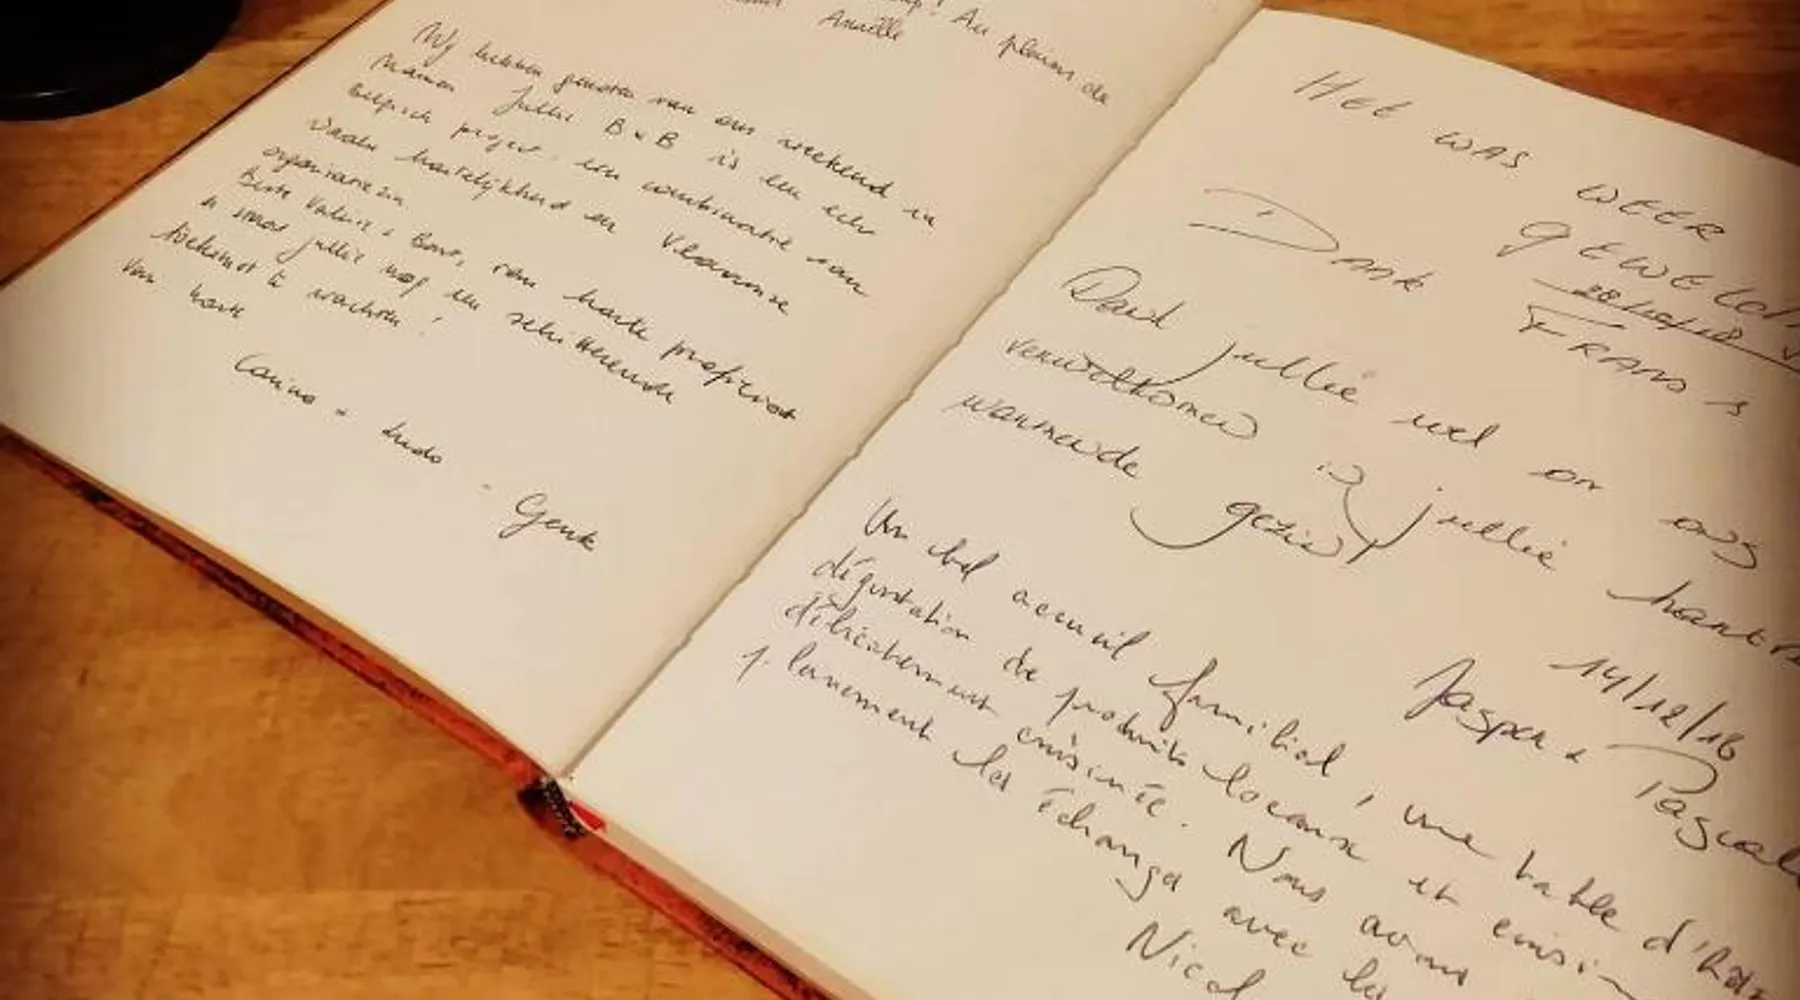 ! Au plaisir de
Anaëlle
Wij hebben genoten van ons weekend in
Jullie B&B is een echt
Belgisch project: een combinatie van
Waalse hartelijkheid en Vlaamse
organisatie
Beste &  van harte proficiat
jullie nog een schitterende
toekomst te wachten!
Van harte
Carine - Ludo - Genk
HET WAS WEER
GEWELDI
28/10/18
DANK FRANS
Dank jullie wel om ons
verwelkomen in jullie hart
warmende gezin!
14/12/18
Jasper & Pascal
Un bel accueil familial, une table d'hôte
dégustation de produits locaux et cuisi
délicatement cuisinée. Nous avons
pleinement les échanges avec les
Nicol